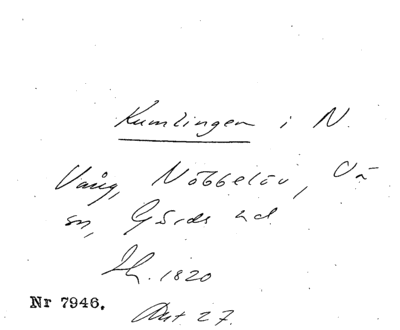 Kumlingen i N.
Vång, Nöbbelöv, Vä
sn, Gärds hd
Sk. 1820
Nr 7946.
Akt 27.